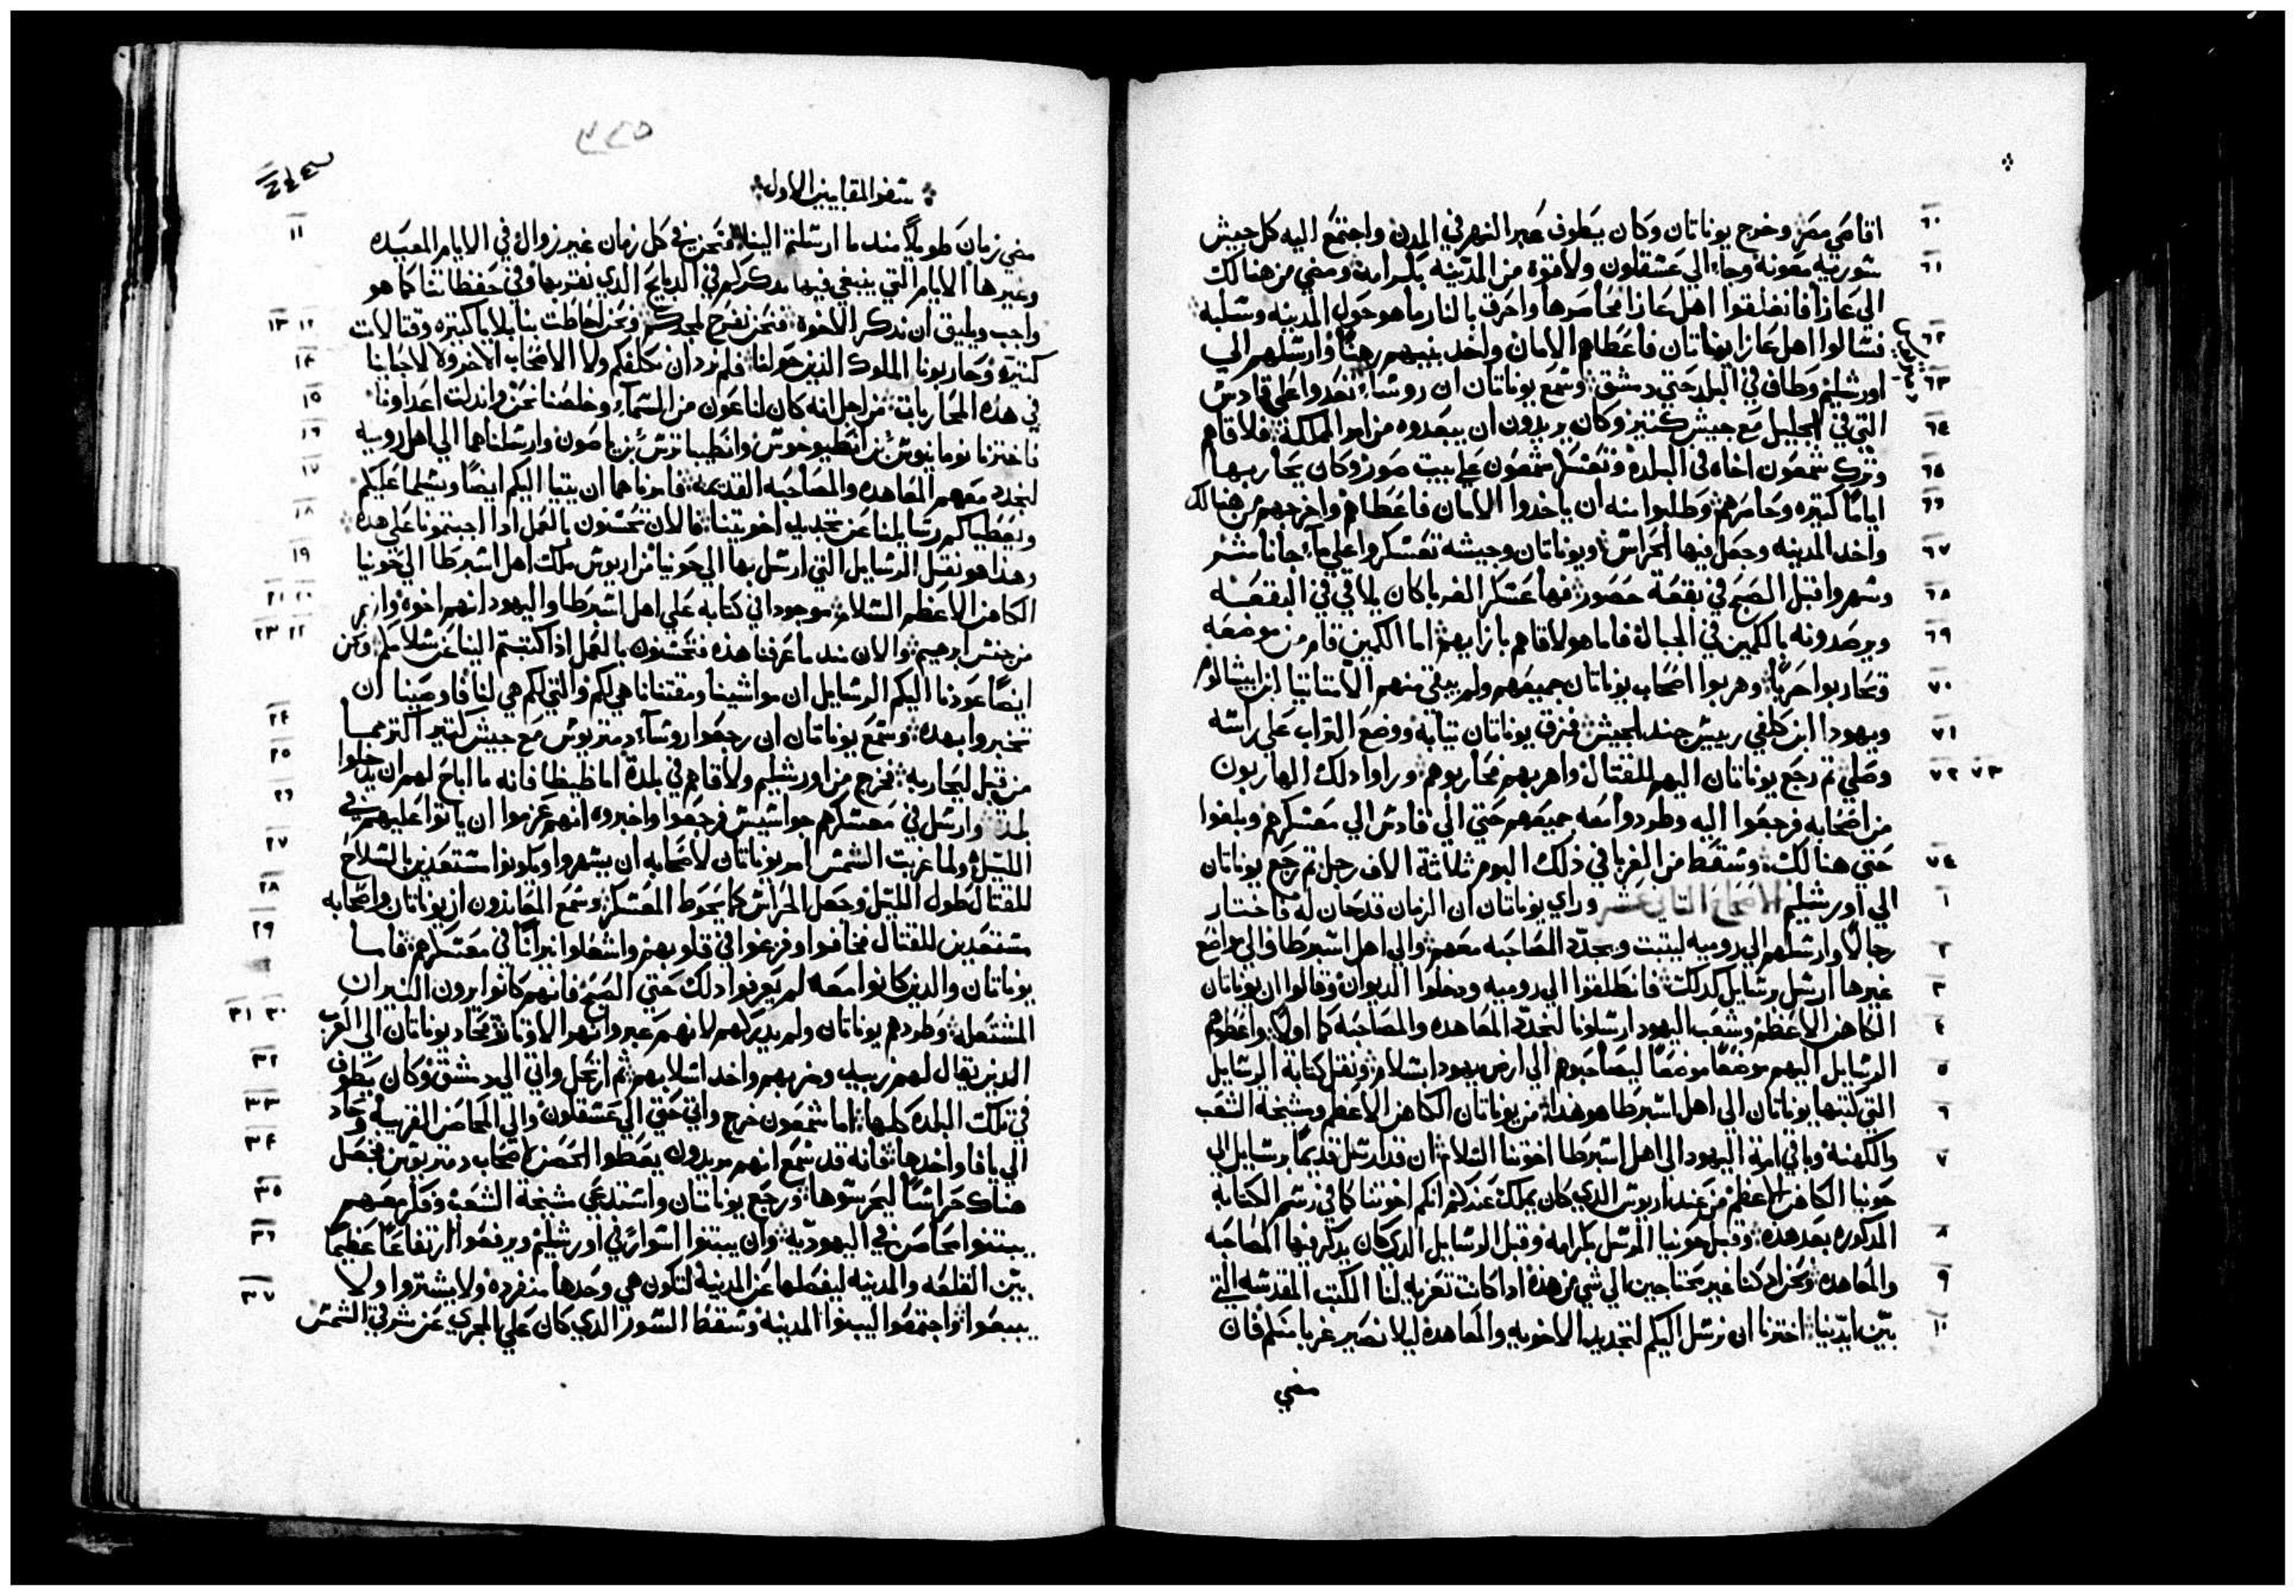 ٦٠ اقاصي مصر وخرج يوناتان وكان يطوف عبر النهر في المدن واجتمع اليه كل جيش
٦١ سورية معونه وجاء الي عسقلون ولاقوه من المدينه بكرامه ومضي من هنالك
الي عازا فانغلقوا اهل عازا فحاصرها واحرق بالنار ما هو حول المدينه وسلبه
٦٢ فسالوا اهل عازا يوناتان فاعطاهم الامان واخد بنيهم رهنا وارسلهم الي
٦٣ اورشليم وطاف في البلد حتي دمشق وسمع يوناتان ان روساء تغدروا علي قادس
التي في الجليل مع جيش كتير وكان يريدون ان يبعدوه من امر المملكة
٦٤ فلاقاهم
٦٥ وترك شمعون اخاه في البلدة وتعسكر شمعون علي بيت صور وكان يحاربها
٦٦ اياما كتيره وحاصرهم وطلبوا منه ان ياخدوا الامان فاعطاهم واخرجهم من هنالك
٦٧ واخد المدينه وجعل فيها الحراس ويوناتان وجيشه تعسكروا علي ماء جاناسر
٦٨ وسهروا قبل الصبح في بقعة حصور فها عسكر الغربا كان يلاقي في البقعه
٦٩ ويرصدونه بالكمين في الجبال فاما هو لاقاهم بازايهم اما الكمين قام من موضعه
٧٠ وتحاربوا حربا وهربوا اصحاب يوناتان جميعهم ولم يبقي منهم الا متاتيا ابن ابيشالوم
٧١ ويهودا ابن كلفي رييس جند الجيش فمزق يوناتان تيابه ووضع التراب علي راسه
٧٢ ٧٣ وصلي تم رجع يوناتان اليهم للقتال واهربهم فحاربوهم وراوا دلك الهاربون
من اصحابه فرجعوا اليه وطردوا معه جميعهم حتي الي قادس الي معسكرهم وبلغوا
٧٤ حتي هنالك وسقط من الغربا في ذلك اليوم ثلاثة الاف رجل تم رجع يوناتان
١ الي اورشليم الاصحاح التاني عشر وراي يوناتان ان الزمان قد حان له فاختار
٢ رجالا وارسلهم الي روميه ليتبت ويجدد المصاحبه معهم والي اهل اسبرطا والي مواضع
٣ غيرها ارسل رسايل كدلك فانطلقوا الي روميه ودخلوا الديوان وقالوا ان يوناتان
٤ الكاهن الاعظم وشعب اليهود ارسلونا لنجدد المعاهده والمصاحبه كما اولا واعطوهم
٥ الرسايل اليهم موضعا موضعا ليصاحبوهم الي ارض يهودا بسلام ونقل كتابة الرسايل
٦ التي كتبها يوناتان الي اهل اسبرطا هو هدا من يوناتان الكاهن الاعظم ومشيخة الشعب
٧ والكهنه وباقي امة اليهود الي اهل اسبرطا اخوتنا السلام ان قد ارسل قديما رسايل الي
حونيا الكاهن الاعظم من عند اريوس الدي كان يملك عندكم انكم اخوتنا كما في رسم الكتابة
٨ المدكوره بعد هده وقبل حونيا المرسل بكرامه وقبل الرسايل الدي كان يدكر فيها المصاحبه
٩ والمعاهده ونحن اد كنا غير محتاجين الي شي من هذه اد كانت تعزيه لنا الكتب المقدسه التي
١٠ بين ايدينا اخترنا ان نرسل اليكم لتجديد الاخويه والمعاهدة ليلا نصير غربا منكم فان
مضي
سفر المقابيين الاول
١١ مضي زمان طويلا مند ما ارسلتم الينا فنحن في كل زمان غير زوال في الايام المعيده
وغيرها الايام التي ينبغي فيها ندكركم في الدبايح الدي نقربها وفي حفظاتنا كما هو
١٢ ١٣ واجب ويليق ان ندكر الاخوة فنحن نفرح لمجدكم ونحن احاطت بنا بلايا كتيره وقتالات
١٤ كتيرة وحاربونا الملوك الذين حولنا فلم نرد ان نكلفكم ولا الاصحاب الاخر ولا لاجبابنا
١٥ في هده المحاربات من اجل انه كان لنا عون من السماء وخلصنا نحن واندلت اعداونا
١٦ فاخترنا نومانيوس بن انطيوخوس وانطيباترس بن ياصون وارسلناهما الي اهل روميه
١٧ لنجدد معهم المعاهده والمصاحبه القديمه فامرناهما ان يتيا اليكم ايضا ويسلما عليكم
١٨ ويعطياكم رسايلنا عن تجديد اخوتينا فالان تحسنون بالعمل ادا اجبتمونا علي هده
١٩ وهذا هو نقل الرسايل التي ارسل بها الي حونيا من اريوس ملك اهل اسبرطا الي حونيا
٢٠ ٢١ الكاهن الاعظم السلام موجودا في كتابه علي اهل اسبرطا واليهود انهم اخوه وانهم
٢٢ ٢٣ من جنس ابرهيم والان مند ما عرفنا هذه فتحسنون بالعمل اذا كتبتم الينا عن سلامكم ونحن
ايضا عودنا اليكم الرسايل ان مواشينا ومقتنانا هي لكم والتي لكم هي لنا فاوصينا ان
٢٤ تخبروا بهده وسمع يوناتان ان رجعوا روساء دمتريوس مع جيش كتير اكتر مما
٢٥ من قبل ليحاربه فخرج من اورشليم ولاقاهم في بلدة اماطيطا فانه ما اباح لهم ان يدخلوا
٢٦ بلده وارسل في معسكرهم جواسيس فرجعوا واخبروه انهم عزموا ان ياتوا عليهم في
٢٧ الليل ولما غربت الشمس امر يوناتان لاصحابه ان يسهروا ويكونوا مستعدين بالسلاح
٢٨ للقتال طول الليل وجعل الحراس كما يحوط المعسكر وسمع المعاندون ان يوناتان واصحابه
٢٩ مستعدين للقتال فخافوا وفزعوا في قلوبهم واشعلوا نيرانا في معسكرهم فاما
يوناتان والدين كانوا معه لم يعرفوا دلك حتي الصبح فانهم كانوا يرون النيران
٣٠ ٣١ المشتعله وطردهم يوناتان ولم يدركهم لانهم عبروا نهر الاوتاروا فحاد يوناتان الي العرب
٣٢ الدين تقال لهم زبيد وضربهم واخد اسلابهم ثم ارتحل واتي الي دمشق وكان يطوف
٣٣ في تلك البلده كلها اما شمعون خرج واتي حتي الي عسقلون والي المحاصن القريبه وحاد
٣٤ الي يافا واخدها فانه قد سمع انهم يريدون يعطوا الحصن لاصحاب دمتريوس فجعل
٣٥ هناك حراسا ليحرسوها ورجع يوناتان واستدعي مشيخة الشعب وفكر معهم
٣٦ يبتنوا محاصن في اليهوديه وان يبتنوا اسوار في اورشليم ويرفعوا ارتفاعا عظيما
٣٧ بين القلعه والمدينه ليفصلها عن المدينة لتكون هي وحدها منفرده ولا يشتروا ولا
يبيعوا واجتمعوا ليبنوا المدينه وسقط السور الدي كان علي المجري عن شرقي الشمس